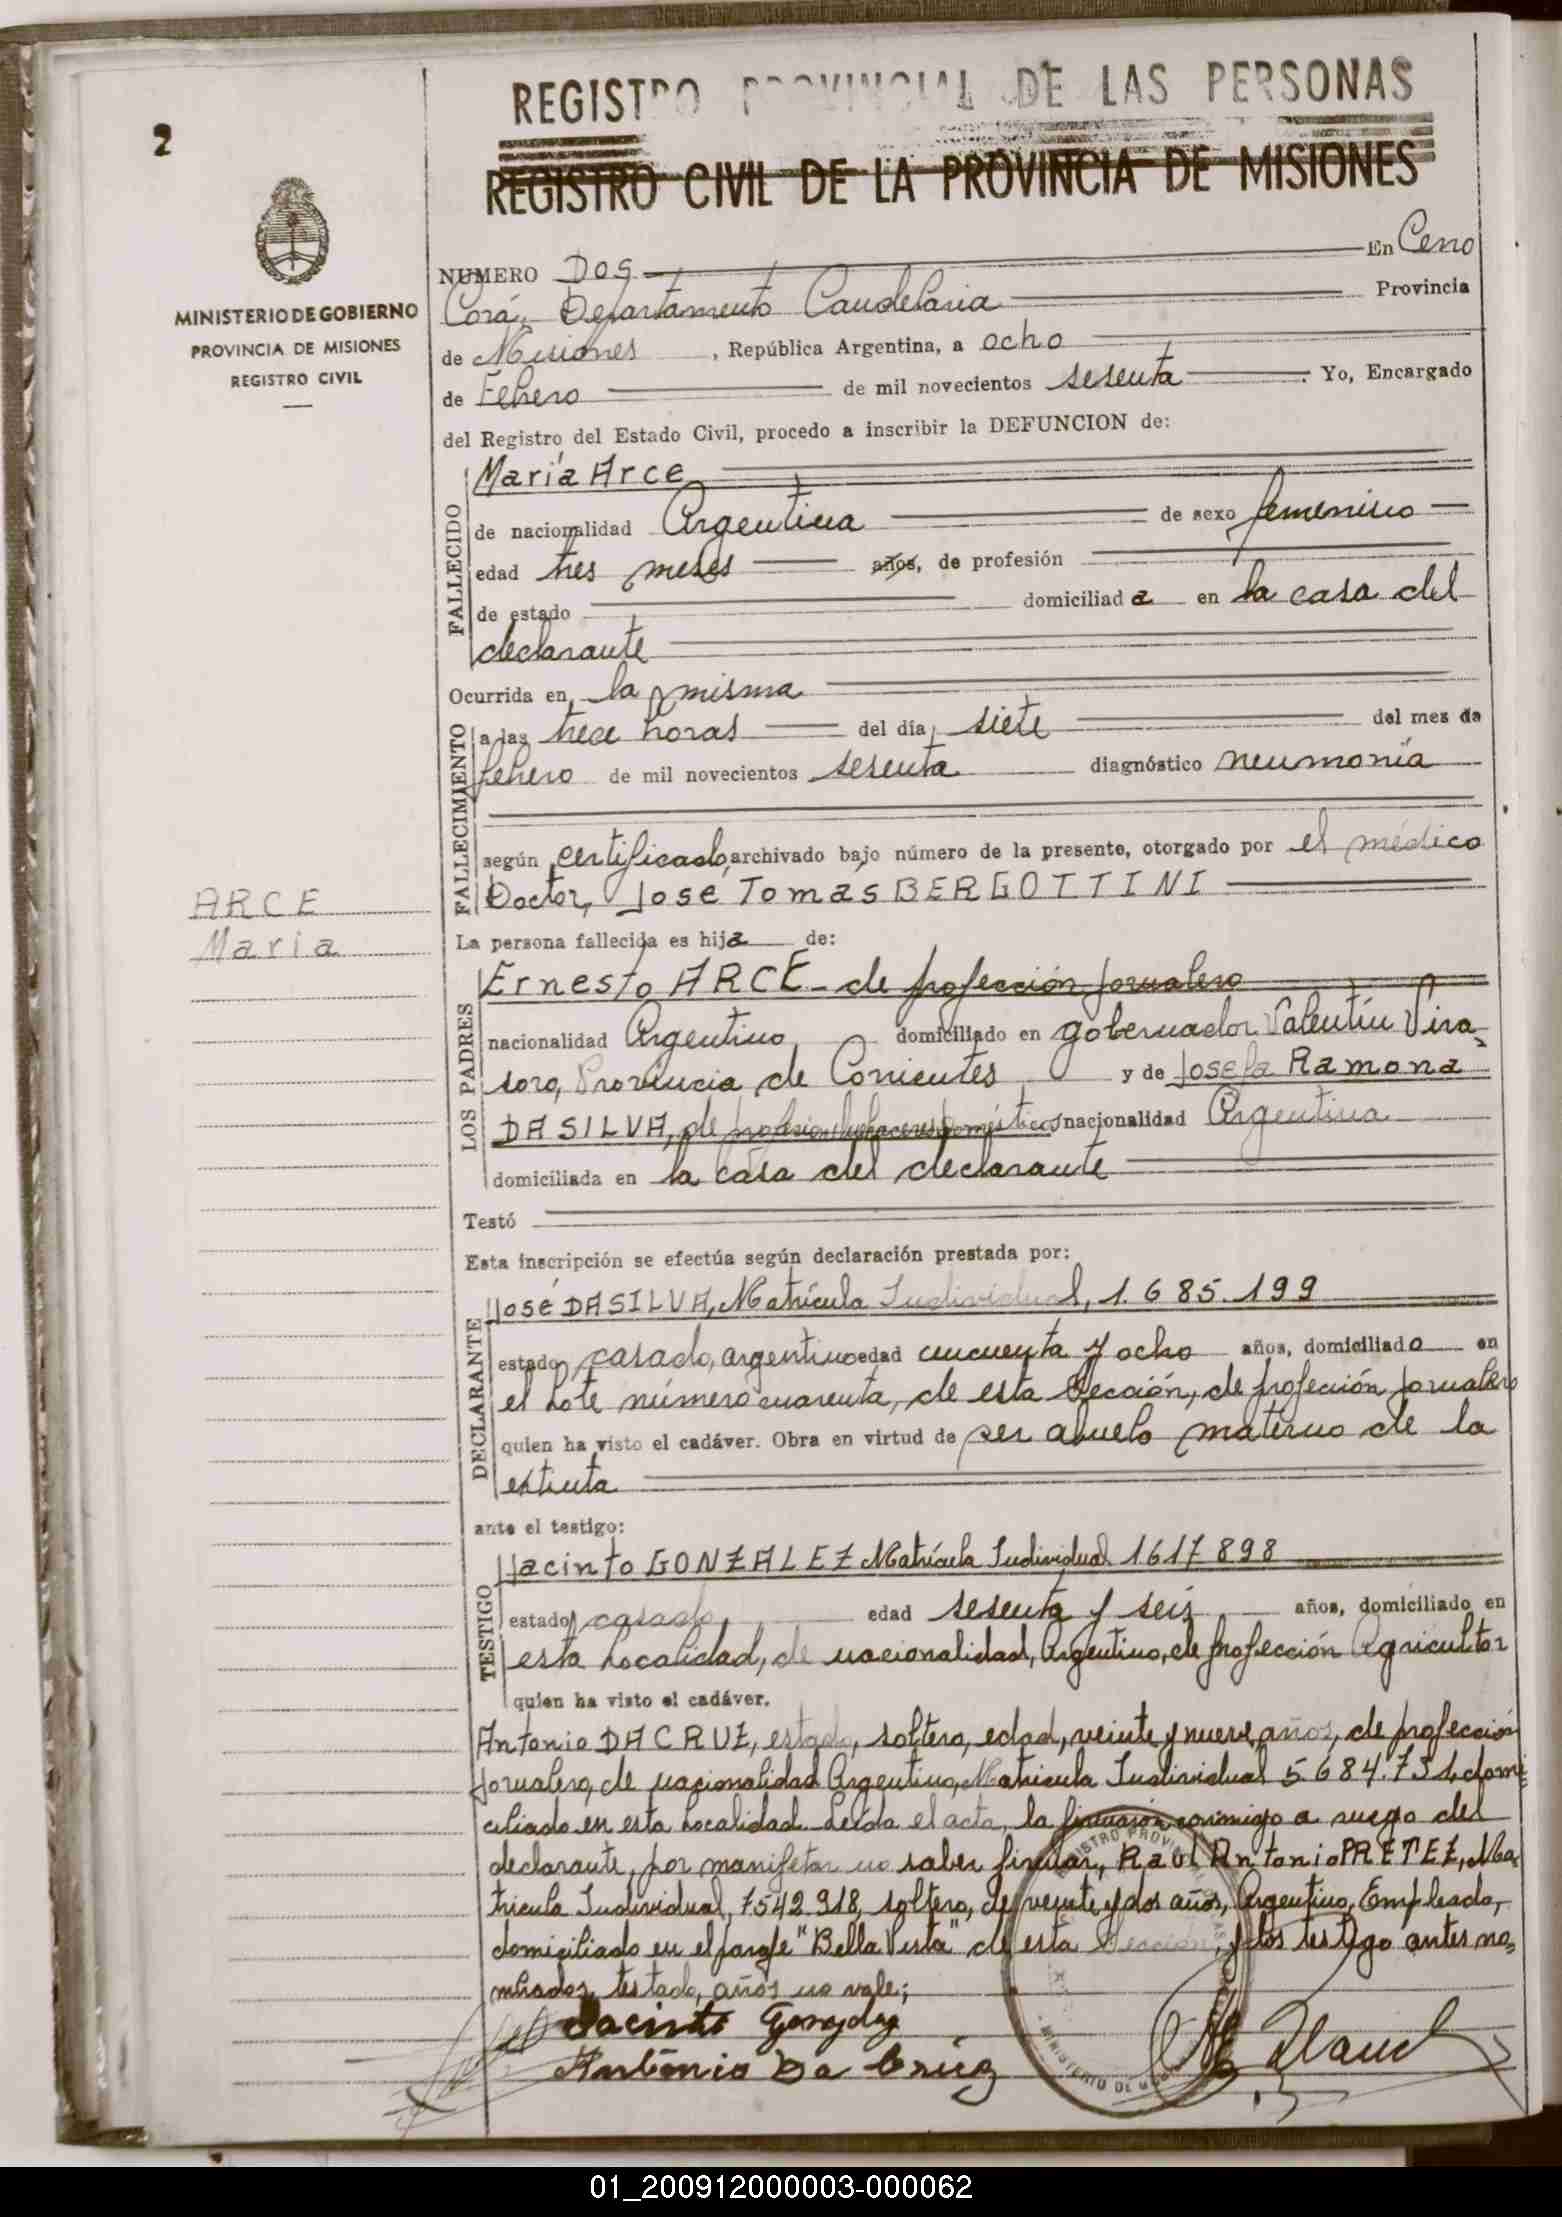 2
REGISTRO PROVINCIAL DE LAS PERSONAS
REGISTRO CIVIL DE LA PROVINCIA DE MISIONES
MINISTERIO DE GOBIERNO
PROVINCIA DE MISIONES
REGISTRO CIVIL
NUMERO Dos En Cerro
Corá, Departamento Candelaria Provincia
de Misiones , República Argentina, a ocho
de Febrero de mil novecientos sesenta . Yo, Encargado
del Registro del Estado Civil, procedo a inscribir la DEFUNCION de:
FALLECIDO
María Arce
de nacionalidad Argentina de sexo femenino
edad tres meses años, de profesión
de estado domiciliad a en la casa del
declarante
Ocurrida en, la misma
FALLECIMIENTO
a las trece horas del día, siete del mes de
febrero de mil novecientos sesenta diagnóstico neumonía
según certificado, archivado bajo número de la presente, otorgado por el médico
Doctor, José Tomás BERGOTTINI
ARCE
María
La persona fallecida es hija de:
LOS PADRES
Ernesto ARCE - de profección jornalero
nacionalidad Argentino, domiciliado en gobernador Valentín Vira-
soro, Provincia de Corrientes y de Josefa Ramona
DA SILVA, de profesion quehaceres domésticos nacionalidad Argentina
domiciliada en la casa del declarante
Testó
Esta inscripción se efectúa según declaración prestada por:
DECLARANTE
José DA SILVA, Matrícula Individual, 1.685.199
estado, casado, argentino edad cincuenta y ocho años, domiciliado en
el Lote número cuarenta, de esta Sección, de profección jornalero
quien ha visto el cadáver. Obra en virtud de ser abuelo materno de la
extinta
ante el testigo:
TESTIGO
Jacinto GONZALEZ Matrícula Individual 1617898
estado, casado, edad sesenta y seis años, domiciliado en
esta Localidad, de nacionalidad, Argentino, de profección Agricultor
quien ha visto el cadáver.
Antonio DA CRUZ, estado, soltero, edad, veinte y nueve años, de profección
jornalero, de nacionalidad Argentino, Matricula Individual 5.684.731, domi
ciliado en esta Localidad. Leída el acta, la firmaron conmigo a ruego del
declarante, por manifetar no saber firmar, Raúl Antonio PRETEZ, Ma-
tricula Individual, 7542.918, soltero, de veinte y dos años, Argentino, Empleado,
domiciliado en el paraje "Bella Vista" de esta Sección, y los testigo antes no-
mbrados, testado, años no vale;
Jacinto Gonzalez
Antonio Da Cruz
REGISTRO PROVINCIAL
MINISTERIO DE
01_200912000003-000062